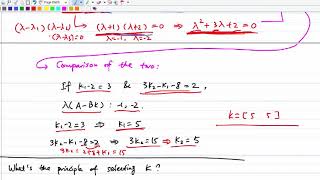 (λ-λ₁)(λ-λ₂)=0 → (λ+1)(λ+2)=0 ⇔ λ²+3λ+2=0
λ=-1, λ=-2
Comparison of the two:
If k₁-2=3 & 3k₂-k₁-8=2,
λ(A-BK): -1, -2.
k₁-2=3 ⇒ k₁=5
k=[5 5]
3k₂-k₁-8=2 ⇒ 3k₂=15 ⇒ k₂=5
What's the principle of selecting K?